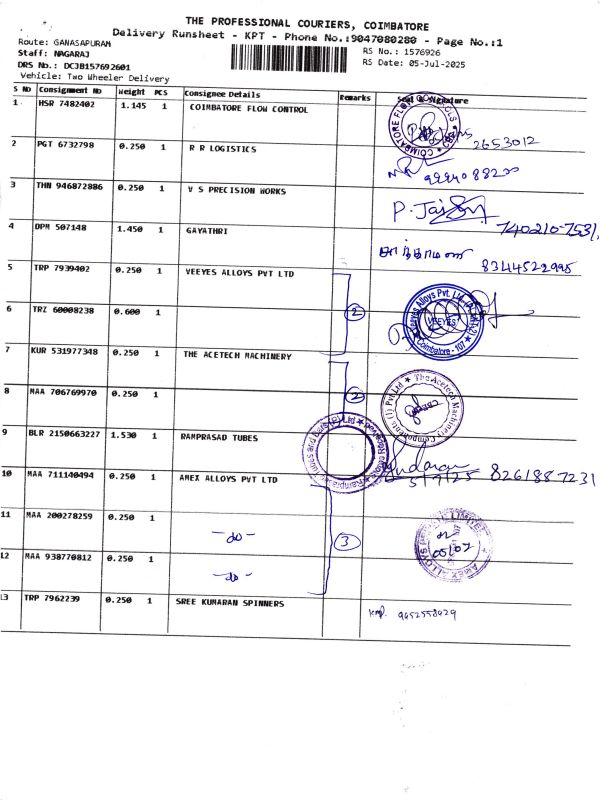 THE PROFESSIONAL COURIERS, COIMBATORE
Delivery Runsheet - KPT - Phone No.:9047080280 - Page No.:1
Route: GANASAPURAM
Staff: NAGARAJ
DRS No.: DCJB157692601
Vehicle: Two Wheeler Delivery
RS No.: 1576926
RS Date: 05-Jul-2025
S No Consignment No Weight PCS Consignee Details Remarks Seal & Signature
1 HSR 7482402 1.145 1 COIMBATORE FLOW CONTROL
COIMBATORE FLOW CONTROLS
2653012
2 PGT 6732798 0.250 1 R R LOGISTICS
3 THN 946872886 0.250 1 V S PRECISION WORKS P. Jai
4 DPM 507148 1.450 1 GAYATHRI 740210-7531
8344522995
5 TRP 7939402 0.250 1 VEEYES ALLOYS PVT LTD
6 TRZ 60008238 0.600 1 2
Veeyes Alloys Pvt. Ltd.
VEEYES
Coimbatore - 107
7 KUR 531977348 0.250 1 THE ACETECH MACHINERY
8 MAA 706769970 0.250 1 2
The Acetech Machinery Components (I) Pvt Ltd
9 BLR 2150663227 1.530 1 RAMPRASAD TUBES
Tubes and Bars (P) Ltd
Sundaran
5/7/25 8261887231
10 MAA 711140494 0.250 1 AMEX ALLOYS PVT LTD
11 MAA 200278259 0.250 1 -do- 3
AMEX ALLOYS LIMITED
05/07
12 MAA 938770812 0.250 1 -do-
13 TRP 7962239 0.250 1 SREE KUMARAN SPINNERS